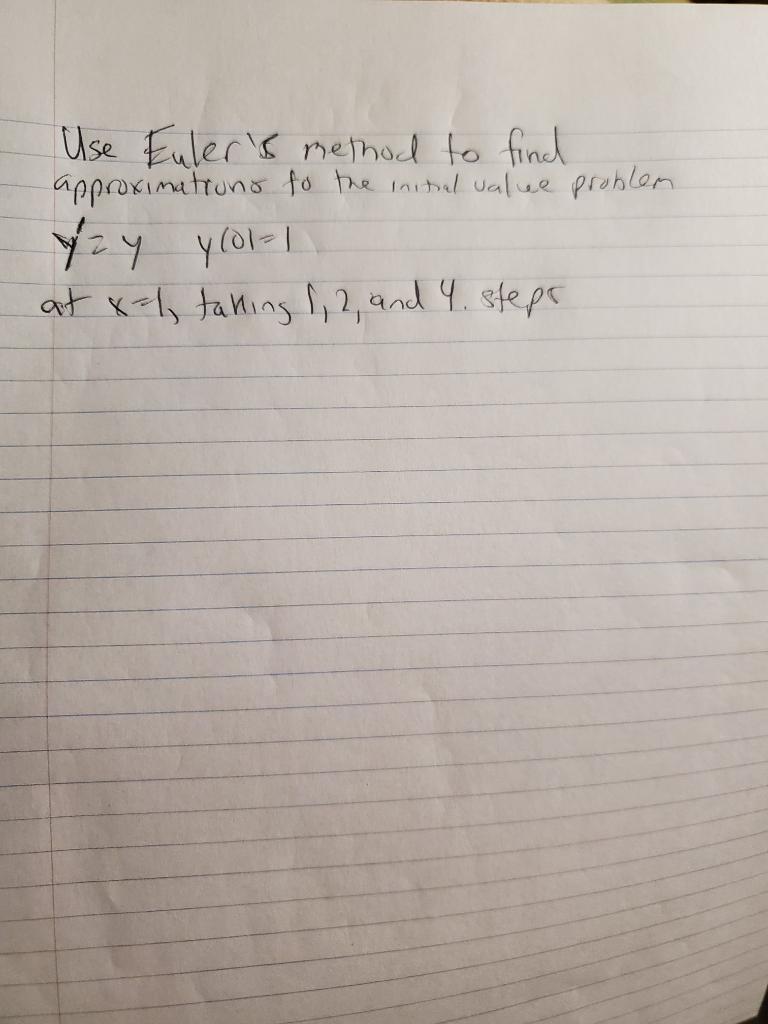 Use Euler's method to find
approximations to the initial value problem
y'=y y(0)=1
at x=1, taking 1, 2, and 4. steps